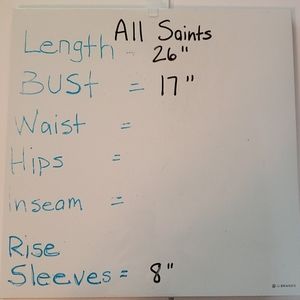 All Saints
Length - 26"
BUSt = 17"
Waist =
Hips =
inseam =
Rise
Sleeves = 8"